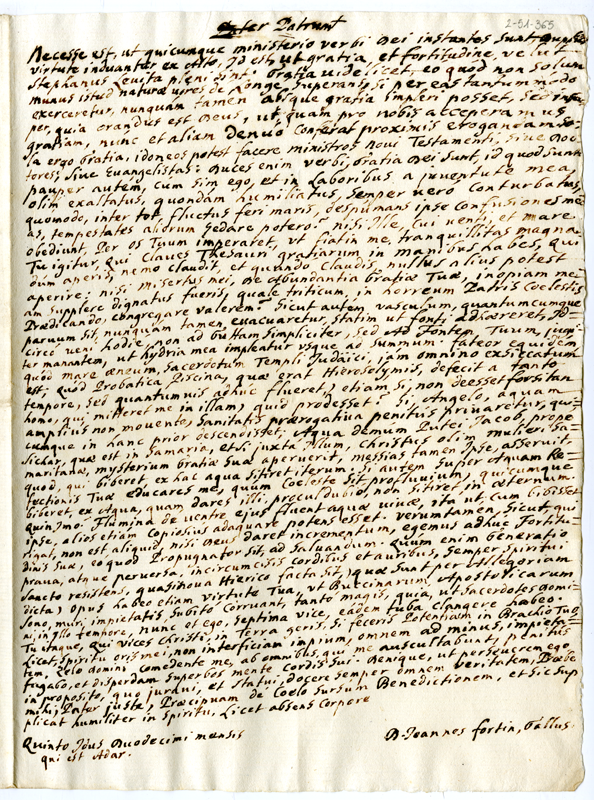 Pater Patrum
2-51-365
Necesse est, ut quicunque ministerio verbi Dei instantes sunt,
virtute induantur ex Alto, Id est, ut gratia, et fortitudine, velut
Stephanus Levita pleni sint: Gratia videlicet, eo quod non solum
munus istud naturæ vires de longe superans, si per eas tantummodo
exerceretur, nunquam tamen absque gratia impleri posset, sed insu=
per, quia orandus est Deus, ut, quam pro nobis accepera mus
gratiam, nunc et aliam denuo conferat proximis erogandam. So=
la ergo Gratia, idoneos potest facere ministros novi Testamenti, sive Doc
tores, sive Evangelistas: Duces enim verbi, Gratia Dei sunt, id quod sunt.
pauper autem, cum sim ego, et in Laboribus a juventute mea,
olim exaltatus, quondam humiliatus, semper vero conturbatus,
quomodo, inter tot fluctus feri maris, despumans ipse confusiones me=
as, tempestates aliorum sedare potero? nisi Ille, cui venti, et mare
obediunt, Per Os Tuum imperaret, ut fiat in me, tranquillitas magna.
Tu igitur, qui Claves Thesauri gratiarum in manibus habes, qui
dum aperis, nemo claudit, et quando Claudis, nullus alius potest
aperire; nisi misertus mei, De Abundantia Gratiæ Tuæ, inopiam me=
am supplere dignatus fueris, quale triticum, in horreum Patris Coelestis
Prædicando, congregare valerem? Sicut autem vasculum, quantumcumque
parvum sit, nunquam tamen, evacuaretur, statim ut fonti adhæreret, Id=
circo veni hodie, non ad Guttam simpliciter, sed Ad Fontem Tuum, jugi=
ter manantem, ut hydria mea impleatur usque ad summum: fateor equidem
quod mare æneum, Sacerdotum Templi Judaici, jam omnino exsiccatum
est, quod Probatica Piscina, quæ erat Hierosolymis, defecit a tanto
tempore, sed quantumvis adhuc flueret, etiam si, non deesset forsitan
homo, qui mitteret me in illam, quid prodesset? Si, Angelo, aquam
amplius non movente, sanitatis prærogativa penitus privaretur, qui=
cunque in hanc prior descendisset. Aqua demum Putei Jacob, prope
Sichar, quæ est in Samaria, etsi juxta Illum, Christus olim mulieri Sa=
maritanæ, mysterium Gratiæ suæ aperuerit, messias tamen Ipse, asseruit,
quod, qui biberet ex hac aqua, sitiret iterum: Si autem super Aquam Re=
fectionis Tuæ educares me, quum Coeleste sit profluvium, quicumque
biberet, ex Aqua, quam dares illi, proculdubio, non sitiret in æternum.
Quin, Imo: Flumina de ventre ejus fluent aquæ vivæ, ita ut cum bibisset
ipse, alios etiam copiosius adaquare potens esset. verumtamen, Sicut, qui
rigat, non est aliquid, nisi Deus daret incrementum, egemus adhuc Fortitu=
dinis suæ, eo quod Propugnator sit, ad Salvandum. Quum enim Generatio
prava, atque perversa, incircumcisis Cordibus et auribus, semper spiritui
Sancto resistens, quasi nova Hierico facta sit, (quæ sunt per Allegoriam
dicta) Opus habeo etiam virtute Tua, ut Buccinarum Apostolicarum
Sono, muri impietatis, subito corruant, tanto magis, quia, ut Sacerdotes Domi=
ni, in illo tempore, nunc et ego, septima vice, eadem tuba clangere habeo.
Tu itaque, qui vices Christi, in Terra geris, si feceris Potentiam in Brachio Tuo,
Licet, spiritu oris mei, non interficiam impium, omnem ad minus, impieta=
tem, Zelo domini comedente me, ab omnibus, qui me auscultabunt, penitus
fugabo, et disperdam superbos mente cordis sui. Denique, ut perseverem ego
in proposito, quo juravi, et statui, docere semper omnem veritatem, Præbe
mihi, Pater juste, Præcipuam de Coelo sursum Benedictionem, et sic sup
plicat humiliter in spiritu, Licet absens corpore
Quinto Idus Duodecimi mensis
qui est Adar.
D. Joannes fortin, Gallus.